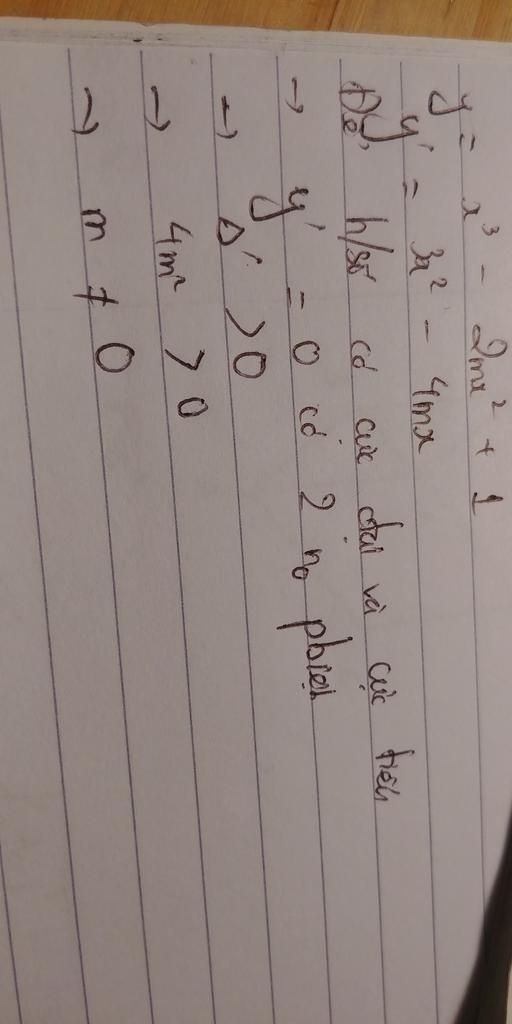 y = x³ - 2mx² + 1
y' = 3x² - 4mx
Để h/số có cực đại và cực tiểu
→ y' = 0 có 2 n₀ pbiệt
→ Δ' > 0
→ 4m² > 0
→ m ≠ 0